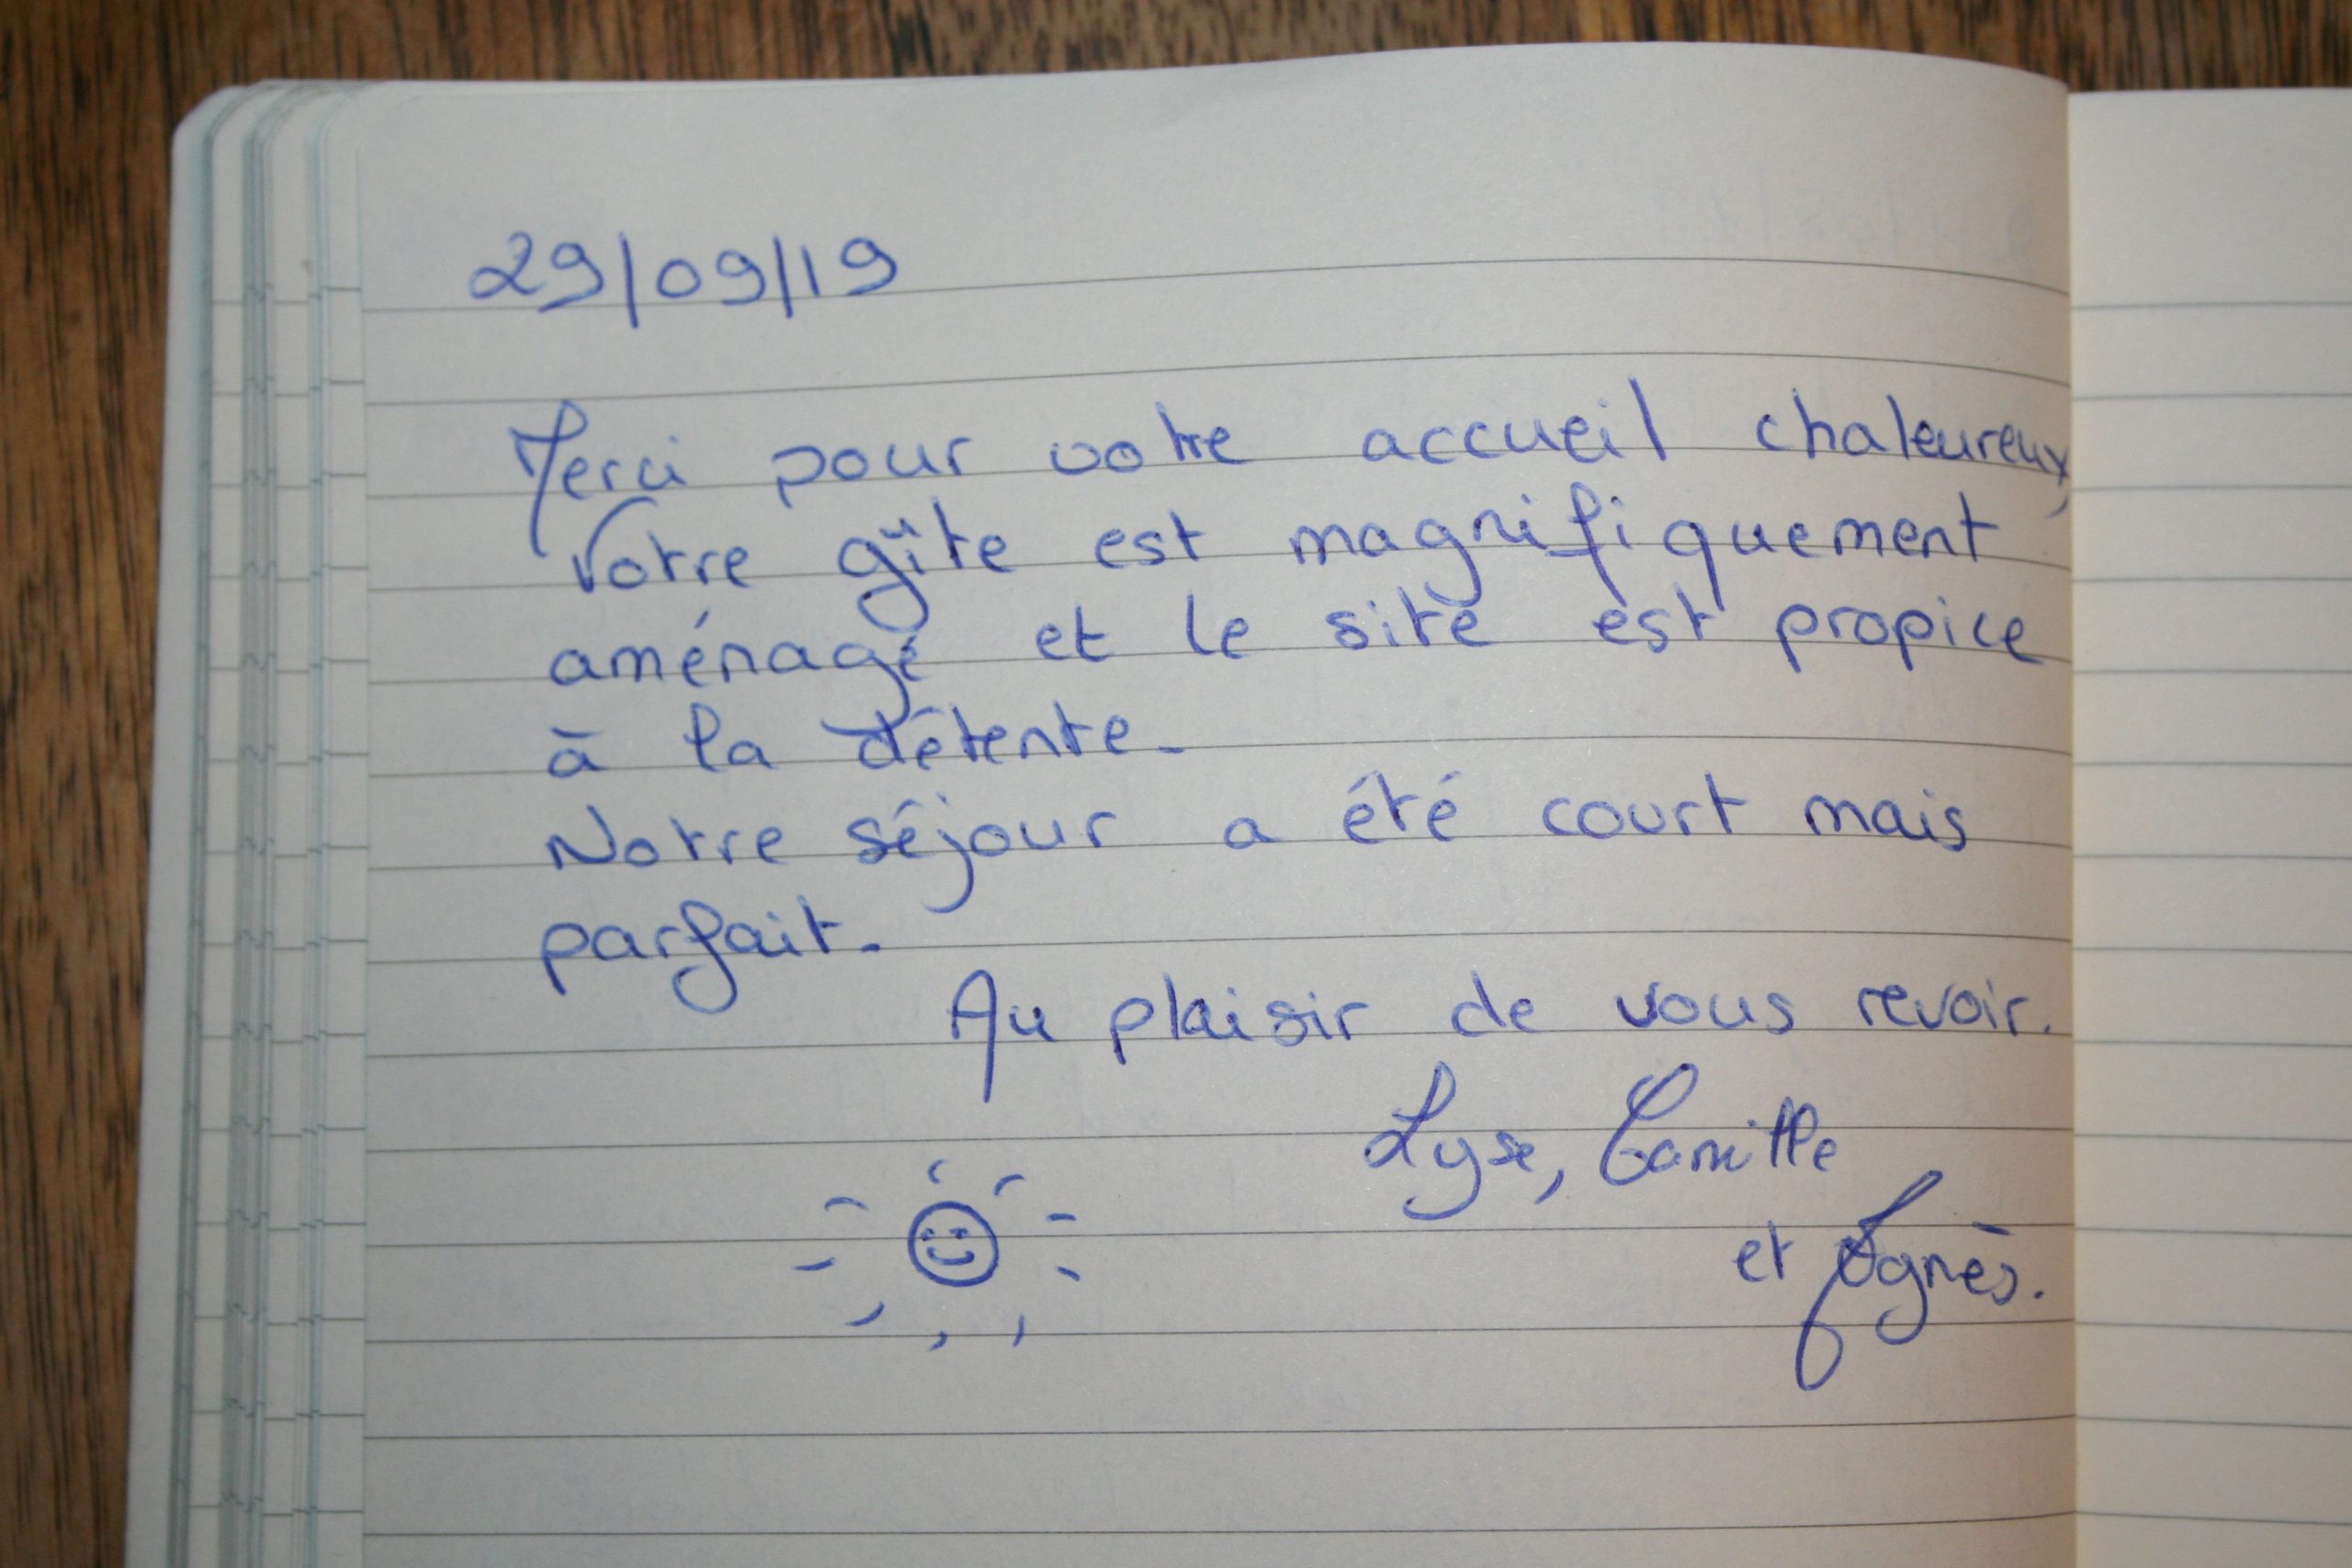 29/09/19
Merci pour votre accueil chaleureux,
Votre gîte est magnifiquement
aménagé et le site est propice
à la détente.
Notre séjour a été court mais
parfait.
Au plaisir de vous revoir.
Lyse, Camille
et Agnès.